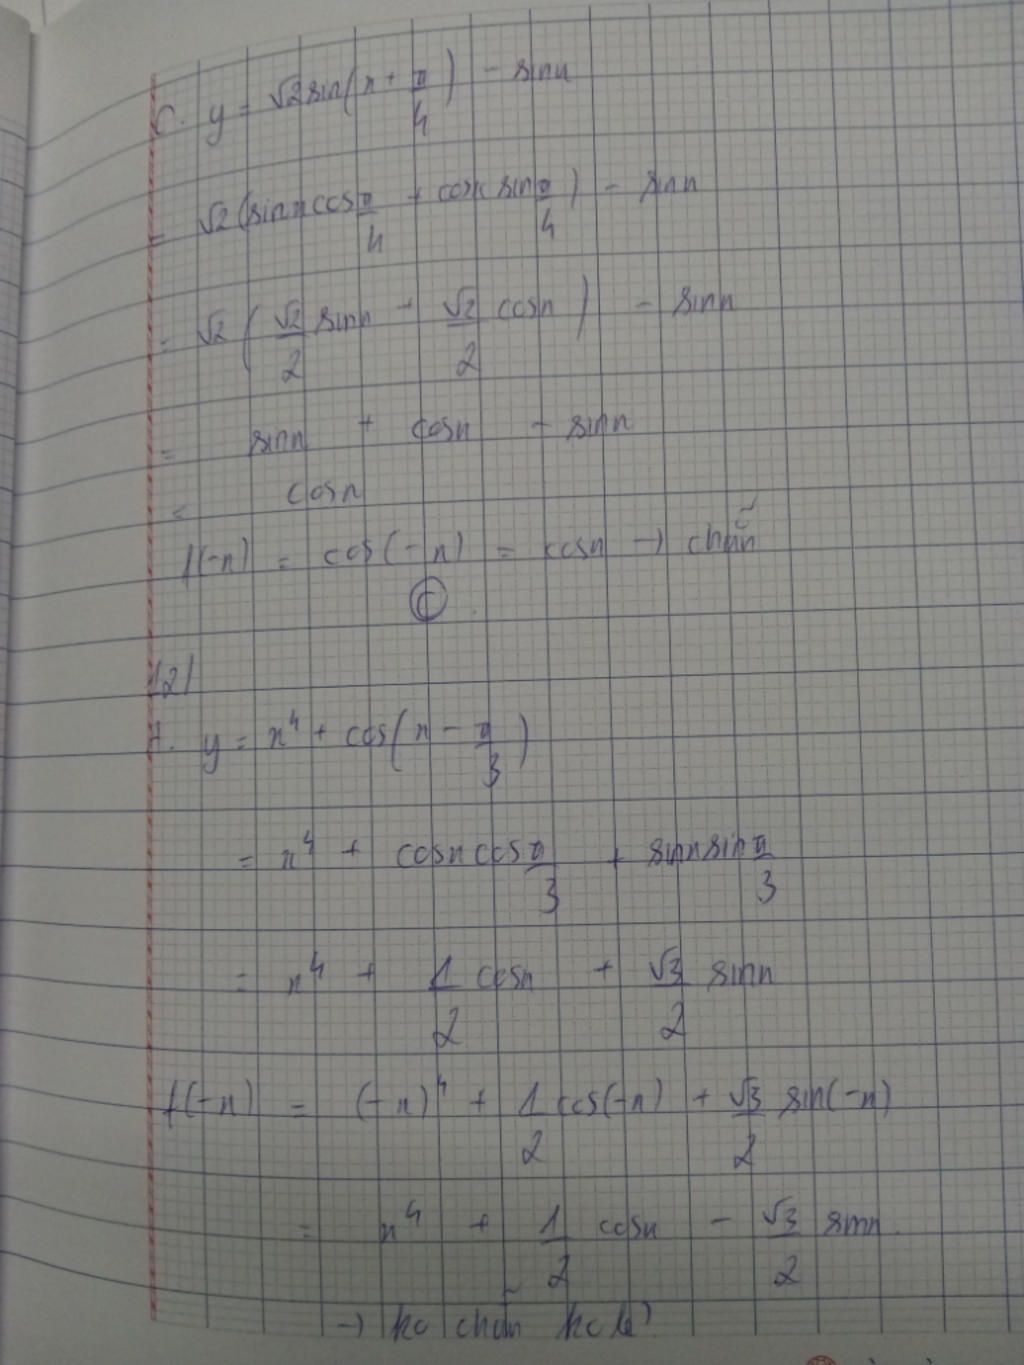 C. y = √2 sin(x + π/4) - sinx
= √2 (sinx cos π/4 + cosx sin π/4) - sinx
= √2 (√2/2 sinx + √2/2 cosx) - sinx
= sinx + cosx - sinx
= cosx
f(-x) = cos(-x) = cosx → chẵn
Ⓒ
12/
A. y = x⁴ + cos(x - π/3)
= x⁴ + cosx cos π/3 + sinx sin π/3
= x⁴ + 1/2 cosx + √3/2 sinx
f(-x) = (-x)⁴ + 1/2 cos(-x) + √3/2 sin(-x)
= x⁴ + 1/2 cosx - √3/2 sinx.
→ ko chẵn ko lẻ